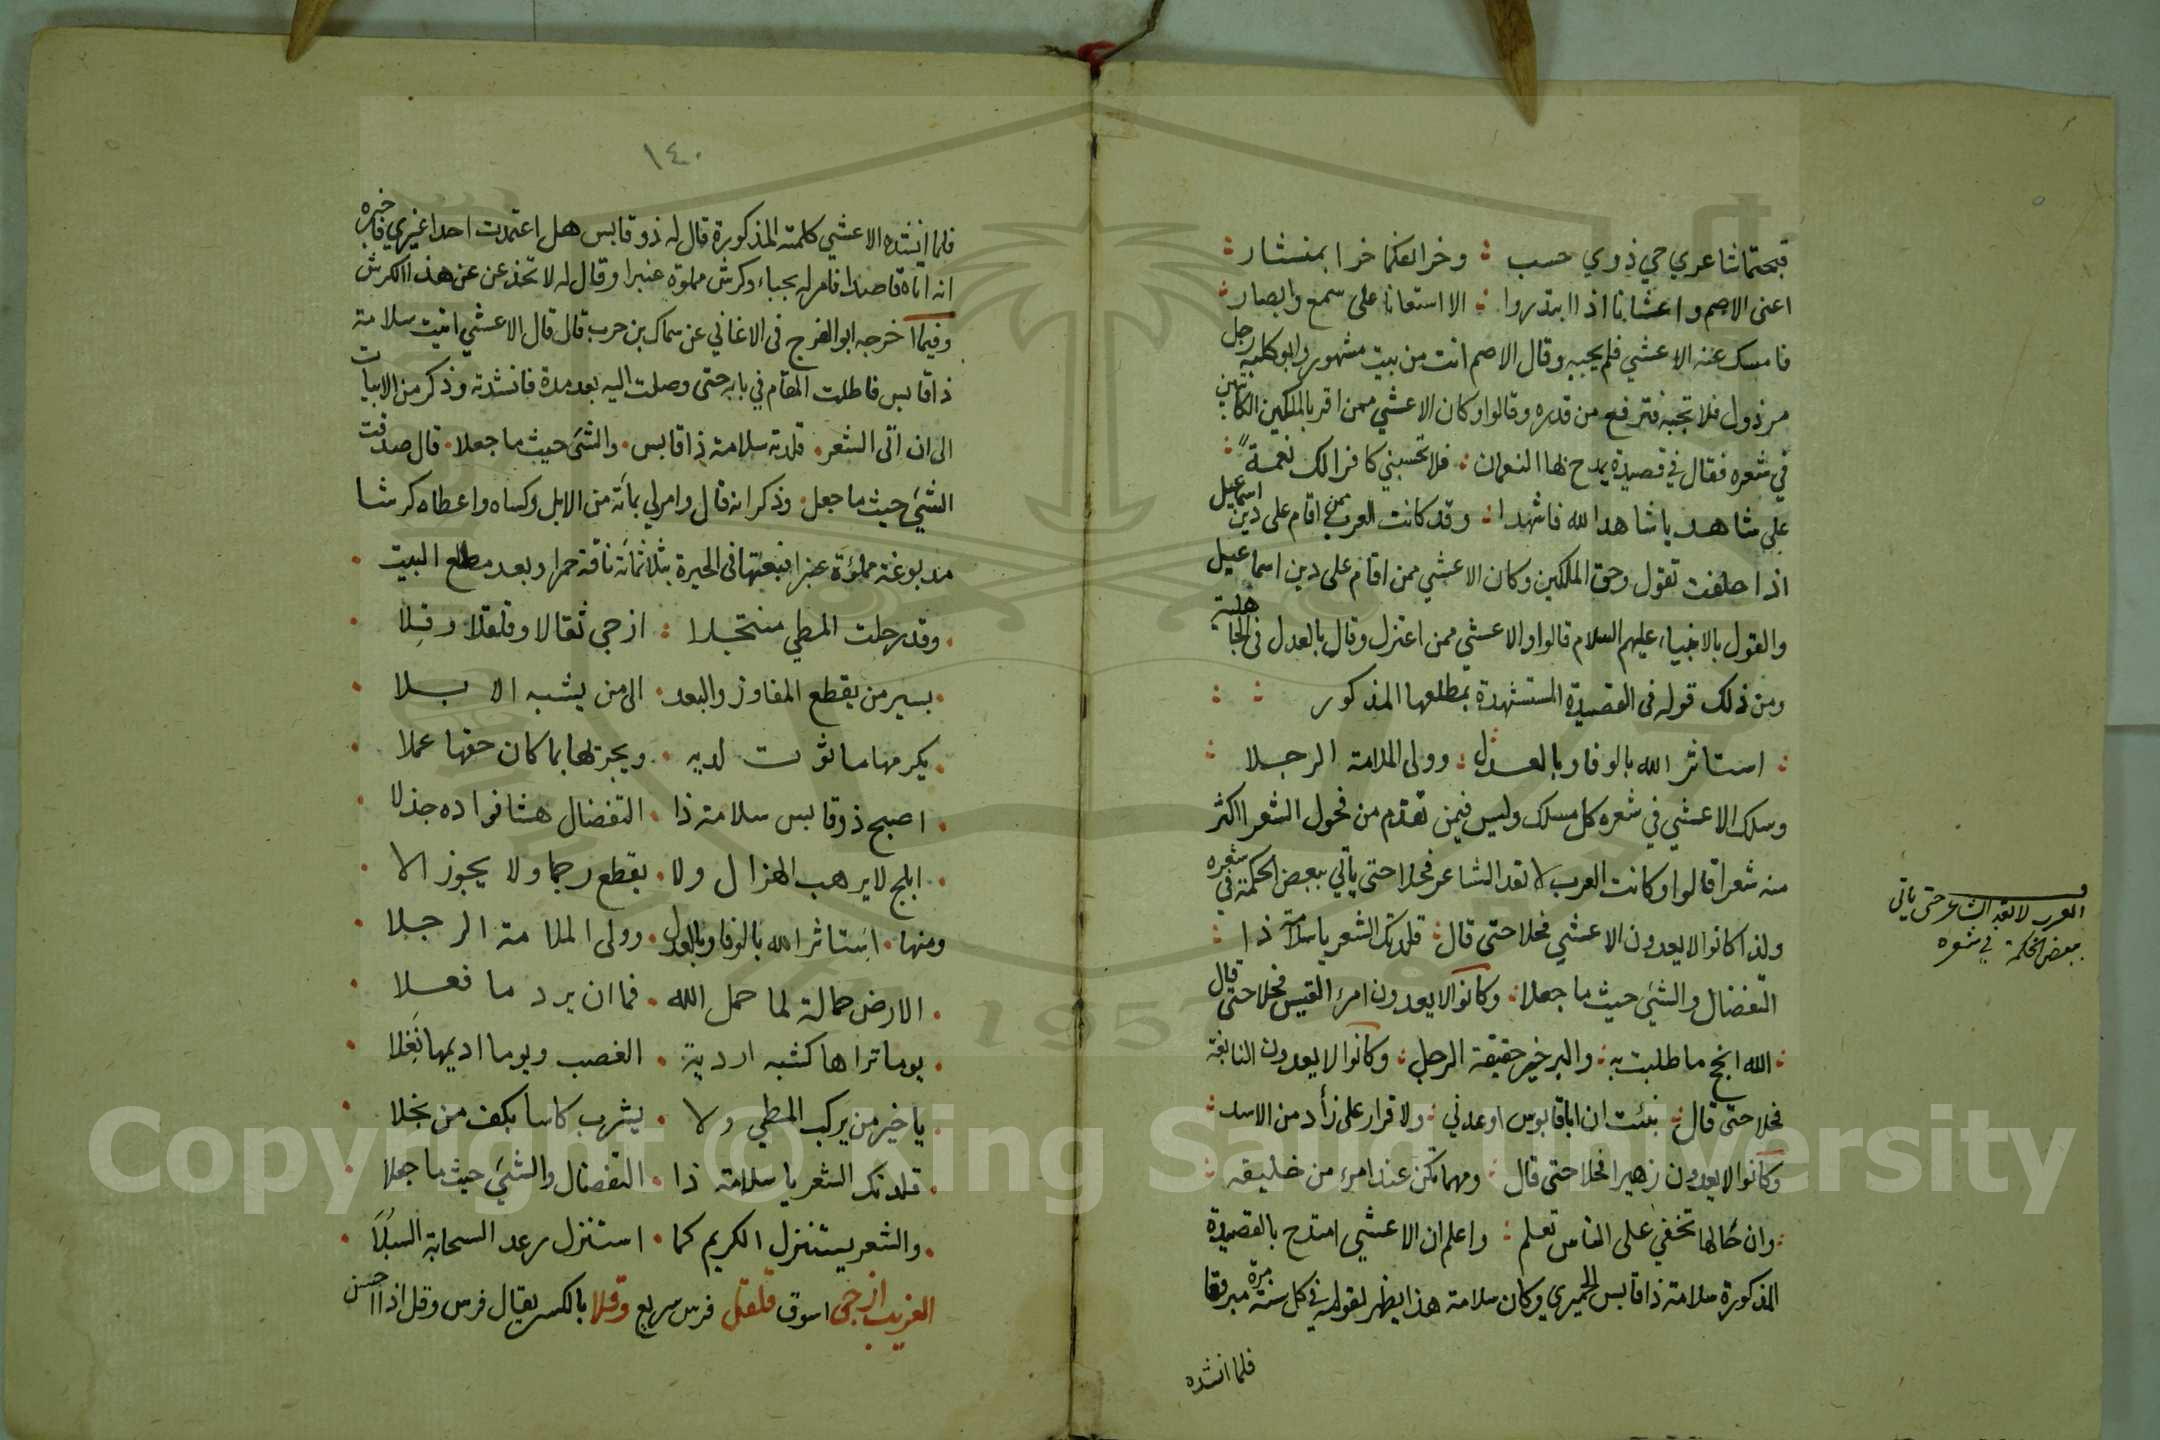 قبحتما شاعري حي ذوي حسب : وخر انفكما خرا بمنشار :
اعنى الاصم واعشانا اذا ابتدروا : الا استعانا على سمع وابصار :
فامسك عنه الاعشي فلم يجبه وقال الاصم انت من بيت مشهور وابو كلبة رجل
مرذول فلا تجبه فترفع من قدره وقالوا وكان الاعشي ممن اقر بالملكين الكاتبين
في شعره فقال في قصيدة يمدح بها النعمان : فلا تحسبني كافرا لك نعمة :
علي شاهد يا شاهد الله فاشهدا : وقد كانت العرب ممن اقام على دين اسماعيل
اذا حلفت تقول وحق الملكين وكان الاعشي ممن اقام على دين اسماعيل
والقول بالانبياء عليهم السلام قالوا والاعشي ممن اعتزل وقال بالعدل في الجاهلية
ومن ذلك قوله في القصيدة المستشهدة بمطلعها المذكور :
: استاثر الله بالوفا وبالعدل : وولى الملامة الرجلا :
وسلك الاعشي في شعره كل مسلك وليس فيمن تقدم من فحول الشعر اكثر
منه شعرا قالوا وكانت العرب لا تعد الشاعر فحلا حتى ياتي ببعض الحكمة في شعره
ولذا كانوا لا يعدون الاعشي فحلا حتى قال : قلدتك الشعر يا سلامة ذا :
التفضال والشي حيث ما جعلا : وكانوا لا يعدون امرء القيس فحلا حتى قال
: الله انجح ما طلبت به : والبر خير حقيقة الرحل : وكانوا لا يعدون النابغة
فحلا حتى قال : نبئت ان ابا قابوس اوعدني : ولا قرار على زأر من الاسد :
وكانوا لا يعدون زهيرا فحلا حتى قال : ومهما تكن عند امرء من خليقه :
: وان خالها تخفي على الناس تعلم : واعلم ان الاعشي امتدح بالقصيدة
المذكورة سلامة ذا قابس الحميري وكان سلامة هذا يظهر لقومه في كل سنة مرة مبرقعا
فلما انشده
العرب لا تعد الشاعر حتى ياتي
ببعض الحكمة في شعره
١٤٠
فلما انشده الاعشي كلمته المذكورة قال له ذو قابس هل اعتمدت احدا غيري فاخبره
انه اتاه قاصدا فامر له بحباء وكرش مملوة عنبرا وقال له لا تخدعن عن هذا الكرش
وفيما اخرجه ابو الفرج في الاغاني عن سماك بن حرب قال قال الاعشي اتيت سلامة
ذا قابس فاطلت المقام في بابه حتى وصلت اليه بعد مدة فانشدته وذكر من الابيات
الى ان اتى الشعر . قلدته سلامة ذا قابس . والشي حيث ما جعلا . قال صدقت
الشي حيث ما جعل . وذكر انه قال وامر لي بمائة من الابل وكساه واعطاه كرشا
مدبوغة مملؤة عنبرا فبعتها في الحيرة بثلاثمائة ناقة حمرا وبعد مطلع البيت .
. وقد رحلت المطي منتخلا : ازجي ثقالا وقلقلا وقلا .
. بسير من يقطع المفاوز والبعد . الى من يشبه الابلا .
. يكرمها ما ثوت لديه . ويجزلها بما كان حفها عملا .
. اصبح ذو قابس سلامة ذا . التفضال هشا فواده جذلا .
. ابلج لا يرهب الهزال ولا . يقطع رحما ولا يجوز الا .
ومنها . استاثر الله بالوفا وبالعدل . وولى الملامة الرجلا
. الارض حمالة لما حمل الله . فما ان يرد ما فعلا .
. يوما تراها كشبه اردية . العصب ويوما اديمها نغلا .
. يا خير من يركب المطي ولا . يشرب كاسا بكف من بخلا .
. قلدتك الشعر يا سلامة ذا . التفضال والشي حيث ما جعلا .
. والشعر يستنزل الكريم كما . استنزل رعد السحابة السبلا .
الغريب ازجي اسوق قلقل فرس سريع وقلا بالكسر يقال فرس وقل اذا احسن